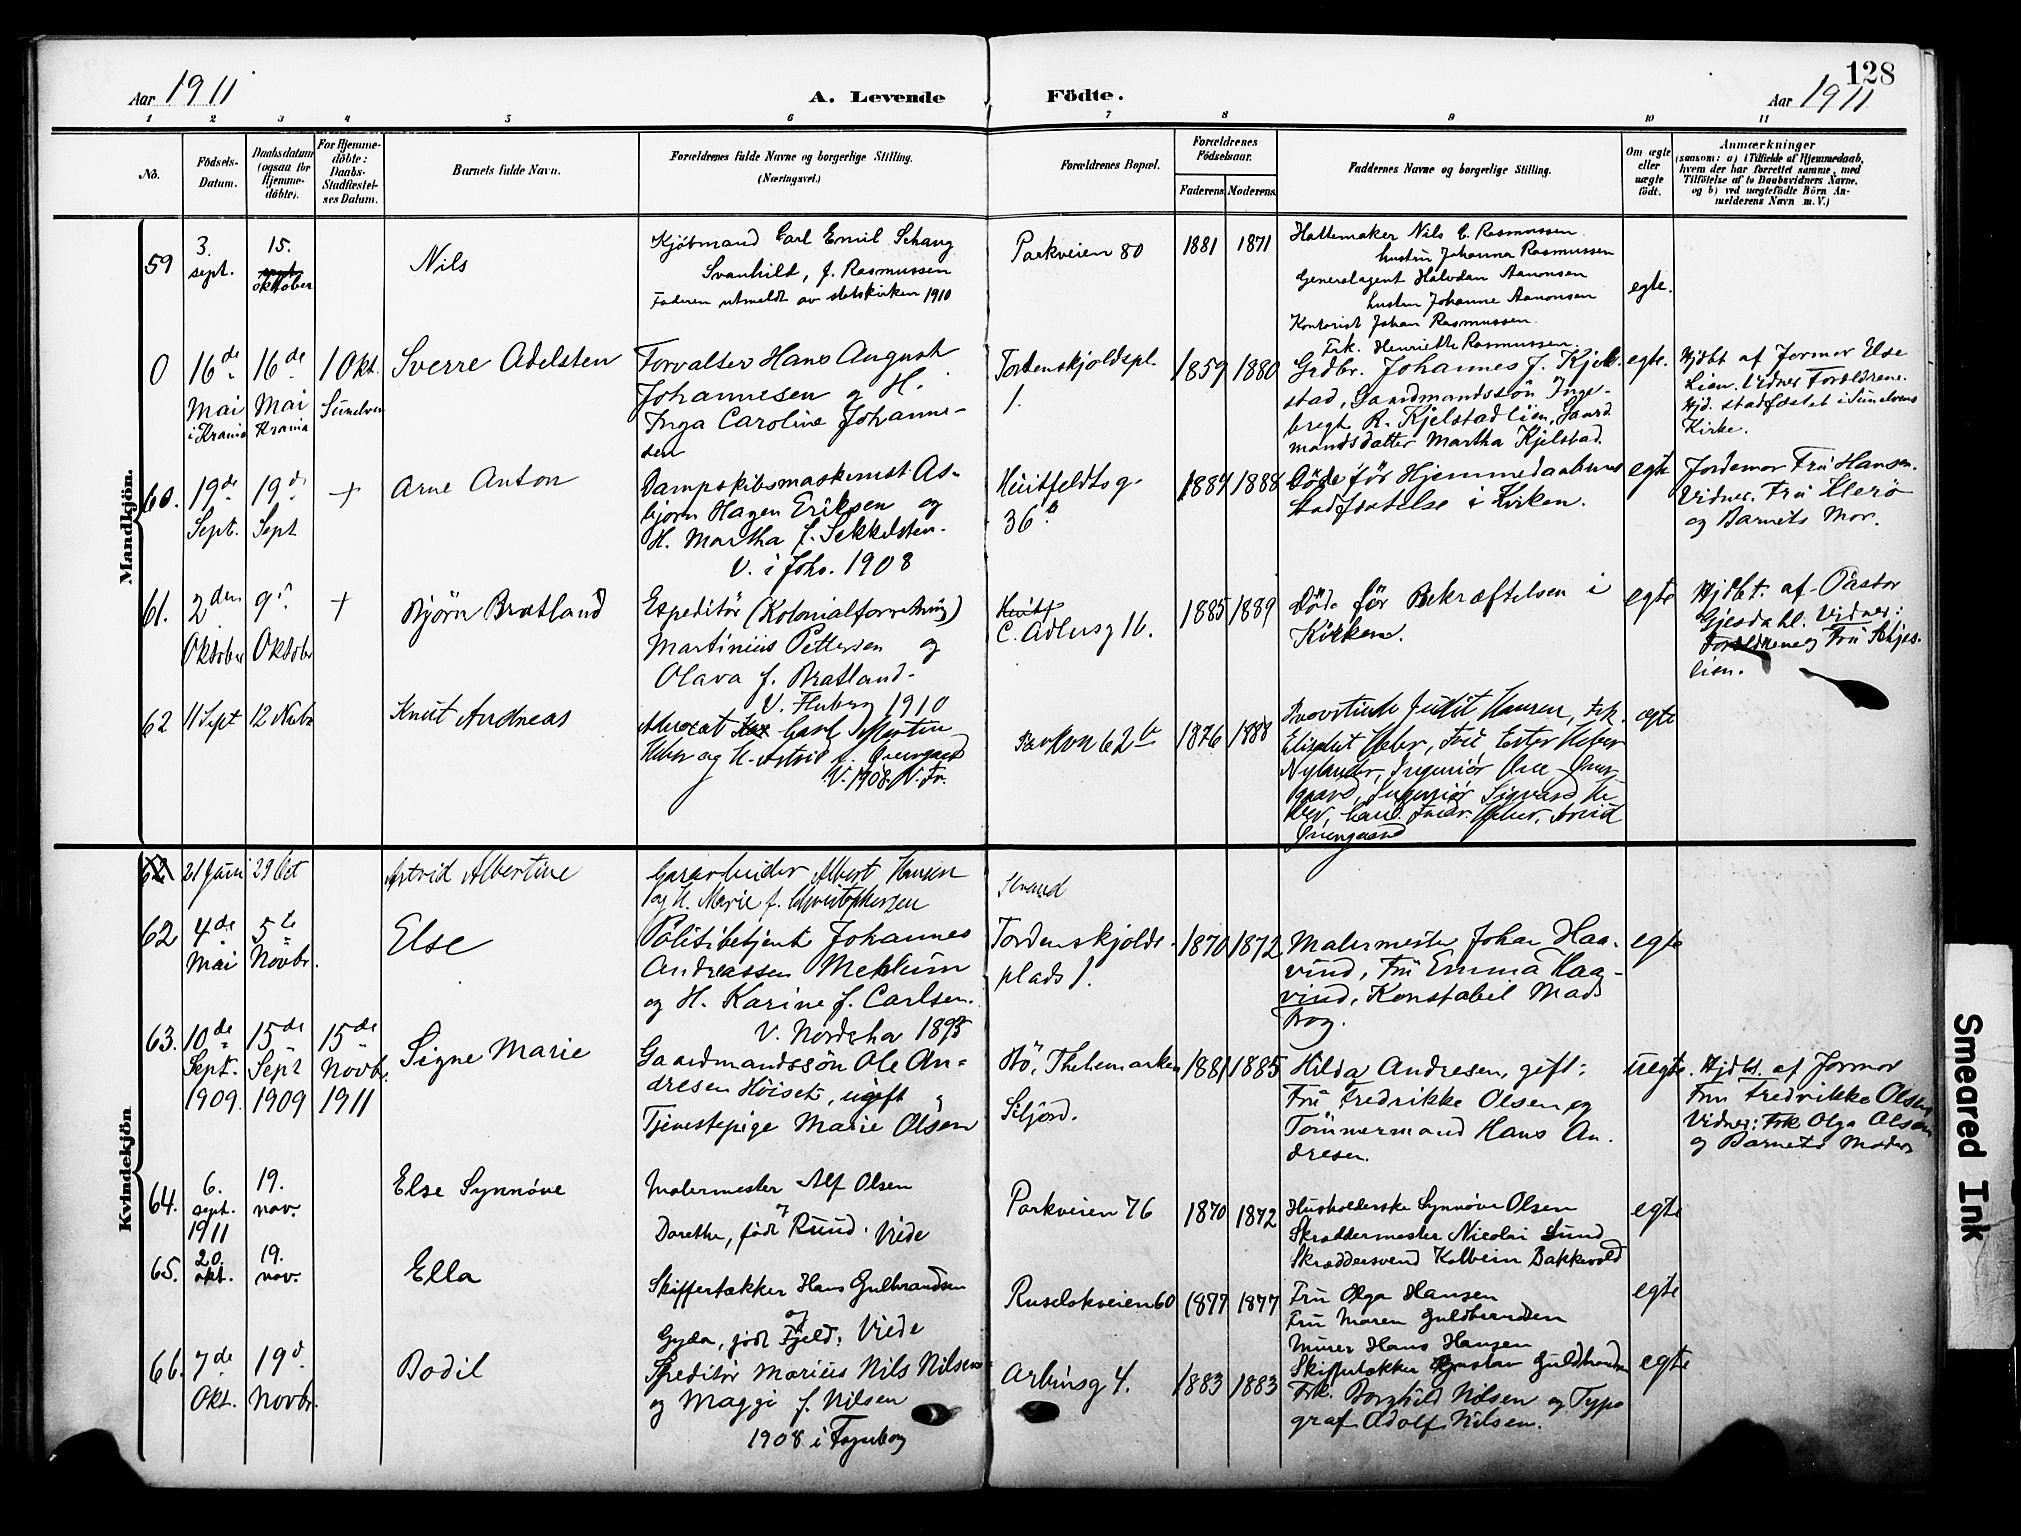 128
Aar 1911
A. Levende Födte.
Aar 1911
1 2 3 4 5 6 7 8 9 10 11
No.
Födsels-
Datum.
Daabsdatum
(ogsaa for
Hjemme-
döbte).
For Hjemme-
döbte:
Daabs-
Stadfæstel-
ses Datum.
Barnets fulde Navn.
Forældrenes fulde Navne og borgerlige Stilling.
(Næringsvei.)
Forældrenes Bopæl.
Forældrenes
Födselsaar.
Faderens. Moderens.
Faddernes Navne og borgerlige Stilling.
Om ægte
eller
uægte
födt.
Anmærkninger
(saasom: a) i Tilfælde af Hjemmedaab,
hvem der har forrettet samme, med
Tilföielse af to Daabsvidners Navne,
og b) ved uægtefödte Börn An-
melderens Navn m. V.)
Mandkjön.
59
3.
sept.
15.
sept.
oktober
Nils
Kjöbmand Carl Emil Schaug
Svanhild, f. Rasmussen
Faderen utmeldt av statskirken 1910
Parkveien 80
1881 1871
Hattemaker Nils C. Rasmussen
hustru Johanna Rasmussen
Generalagent Halvdan Aanonsen
hustru Johanne Aanonsen
Kontorist Johan Rasmussen.
Frk. Henriette Rasmussen.
egte.
0
16de
Mai
i Krania
16de
Mai
Krania
1 Okt.
Sunelven
Sverre Adelsten
Forvalter Hans August
Johannesen og H.
Inga Caroline Johanne-
sen
Tordenskjoldspl.
1.
1859 1880
Grdbr. Johannes J. Kjel-
stad, Gaardmandssön Inge-
bregt R. Kjelstadlien, Gaard
mandsdatter Martha Kjelstad.
egte.
Hjdbt af Jormor Else
Lien. Vidner Forældrene.
Hjd. stadfæstet i Sunelvens
Kirke.
60.
19de
Sept.
19d.
Sept
+
Arne Anton
Dampskibsmaskinist As-
bjørn Hagen Eriksen og
H. Martha f. Sekkelsten.
V. i Joh. 1908
Huitfeldtsg.
36 B
1884 1888
Døde før Hjemmedaabens
stadfæstelse i Kirken.
egte
Jordemor Fru Hansen.
Vidner. Fru Herö
og Barnets Mor.
61.
2den
Oktober
9d.
Oktobr
+
Bjørn Bratland
Expeditör (Kolonialforretning)
Martinius Pettersen og
Olava f. Bratland.
V. 1910
C. Adlersg 16.
1885 1889
Döde för Bekræftelsen i
Kirken.
egte
Hjdbt. af Pastor
Gjesdahl. Vidner:
Forældrene og Fru
lien.
62
11 Sept
12 Novbr
Knut Andreas
Advocat Carl Martin
Heber og H. Astrid f. Quengaard
V. 1908 V. Fr.
Parkvn 62 b
1876 1888
Provstinde Judit Hansen, Frk.
Elisabet Heber, Fru Ester Heber
Nylander, Ingeniör Ove Quen-
gaard, Ingeniör Sigvard He-
ber, Cand. Fredr. Heber, Astrid
Quengaard
egte
Kvindekjön
21 Juni
29 Oct
Astrid Albertine
Gasarbeider Albert Hansen
og H. Marie f. Christophersen
Strand
62
4de
Mai
5te
Novbr.
Else
Politibetjent Johannes
Andreassen Mehlum
og H. Karine f. Carlsen.
V. Nordstha 1895
Tordenskjolds-
plads 1.
1870 1872
Malermester Johan Haa-
vind, Fru Emma Haa-
vind, Konstabel Mads
Brog.
egte
63.
10de
Sept.
1909
15de
Sept
1909
15de
Novbr.
1911
Signe Marie
Gaardmandssön Ole An-
dresen Höiset, ugift
Tjenestepige Marie Olsen
Bö, Thelemarken
Seljord.
1881 1885
Hilda Andresen, gift;
Fru Fredrikke Olsen og
Tömmermand Hans An-
dresen.
uegte.
Hjdbt. af Jormor
Fru Fredrikke Olsen
Vidner: Frk Olga Olsen
og Barnets Moder
64.
6.
sept.
1911
19.
nov.
Else Synnöve
Malermester Alf Olsen
og
Dorethe, född Ruud. Viede
Parkveien 76
1870 1872
Husholderske Synnöve Olsen
Skræddermester Nicolai Lund
Skræddersvend Kolbein Bakkevold
egte
65.
20.
okt.
19.
nov.
Ella
Skiffertækker Hans Gulbrandsen
og
Gyda, född Fjeld; Viede
Ruselökveien 60
1877 1877
Fru Olga Hansen
Fru Maren Guldbrandsen
Murer Hans Hansen
Skiffertækker Gustav Guldbrandsen
egte
66.
7de
Okt.
19d.
Novbr.
Bodil
Speditör Marius Nils Nilsen
og Maggi f. Nilsen
1908 i Fagerborg
Arbinsg 4.
1883 1883
Frk. Borghild Nilsen og Typo
graf Adolf Nilsen.
egte
Smeared Ink